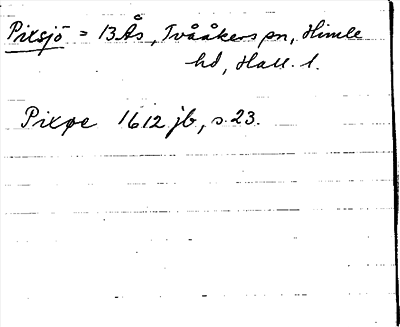 Pixsjö = 13 Ås, Tvååkers sn, Himle
hd, Hall. l.
Pixøe 1612 jb, s. 23.